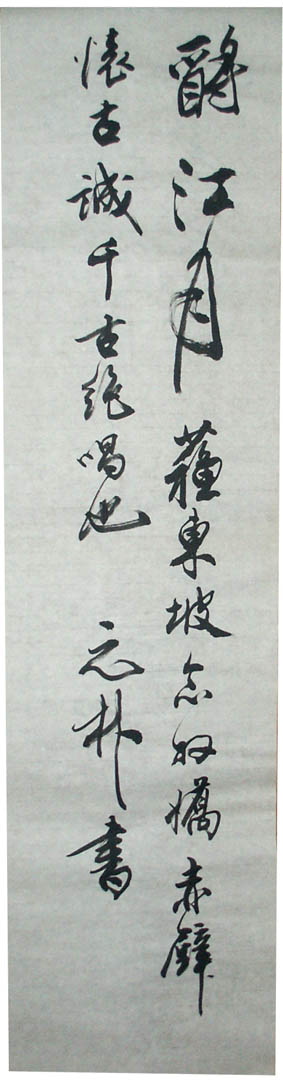 酹江月 蘇東坡念奴嬌赤壁
懷古誠千古絶唱也 朴書